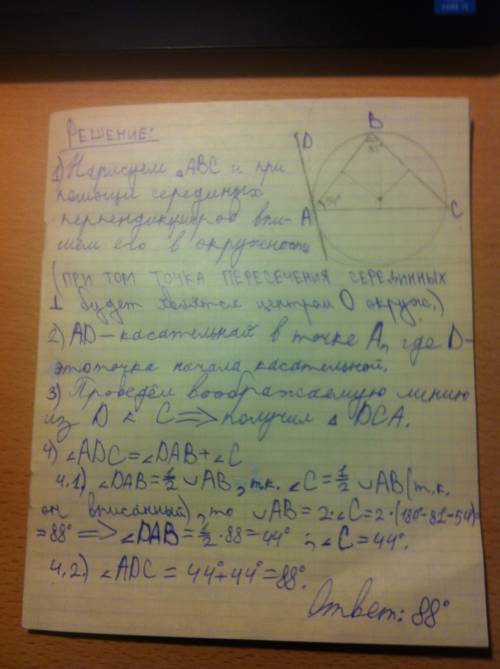 РЕШЕНИЕ:
1) Нарисуем △ABC и при
помощи серединых
перпендикуляров впи-
шем его в окружность
(ПРИ ТОМ ТОЧКА ПЕРЕСЕЧЕНИЯ СЕРЕДИННЫХ
⊥ будет являтся центром О окруж.)
2) AD – касательная в точке A, где D–
это точка начала касательной.
3) Проведём воображаемую линию
из D к C ⟹ получим △ DCA.
4) ∠ADC = ∠DAB + ∠C
4.1) ∠DAB = 1/2 ∪AB, т.к. ∠C = 1/2 ∪AB (т.к.
он вписанный), то ∪AB = 2·∠C = 2·(180-82-54)=
= 88° ⟹ ∠DAB = 1/2·88 = 44° ; ∠C = 44°.
4.2) ∠ADC = 44°+44° = 88°.
Ответ: 88°
D
B
A
C